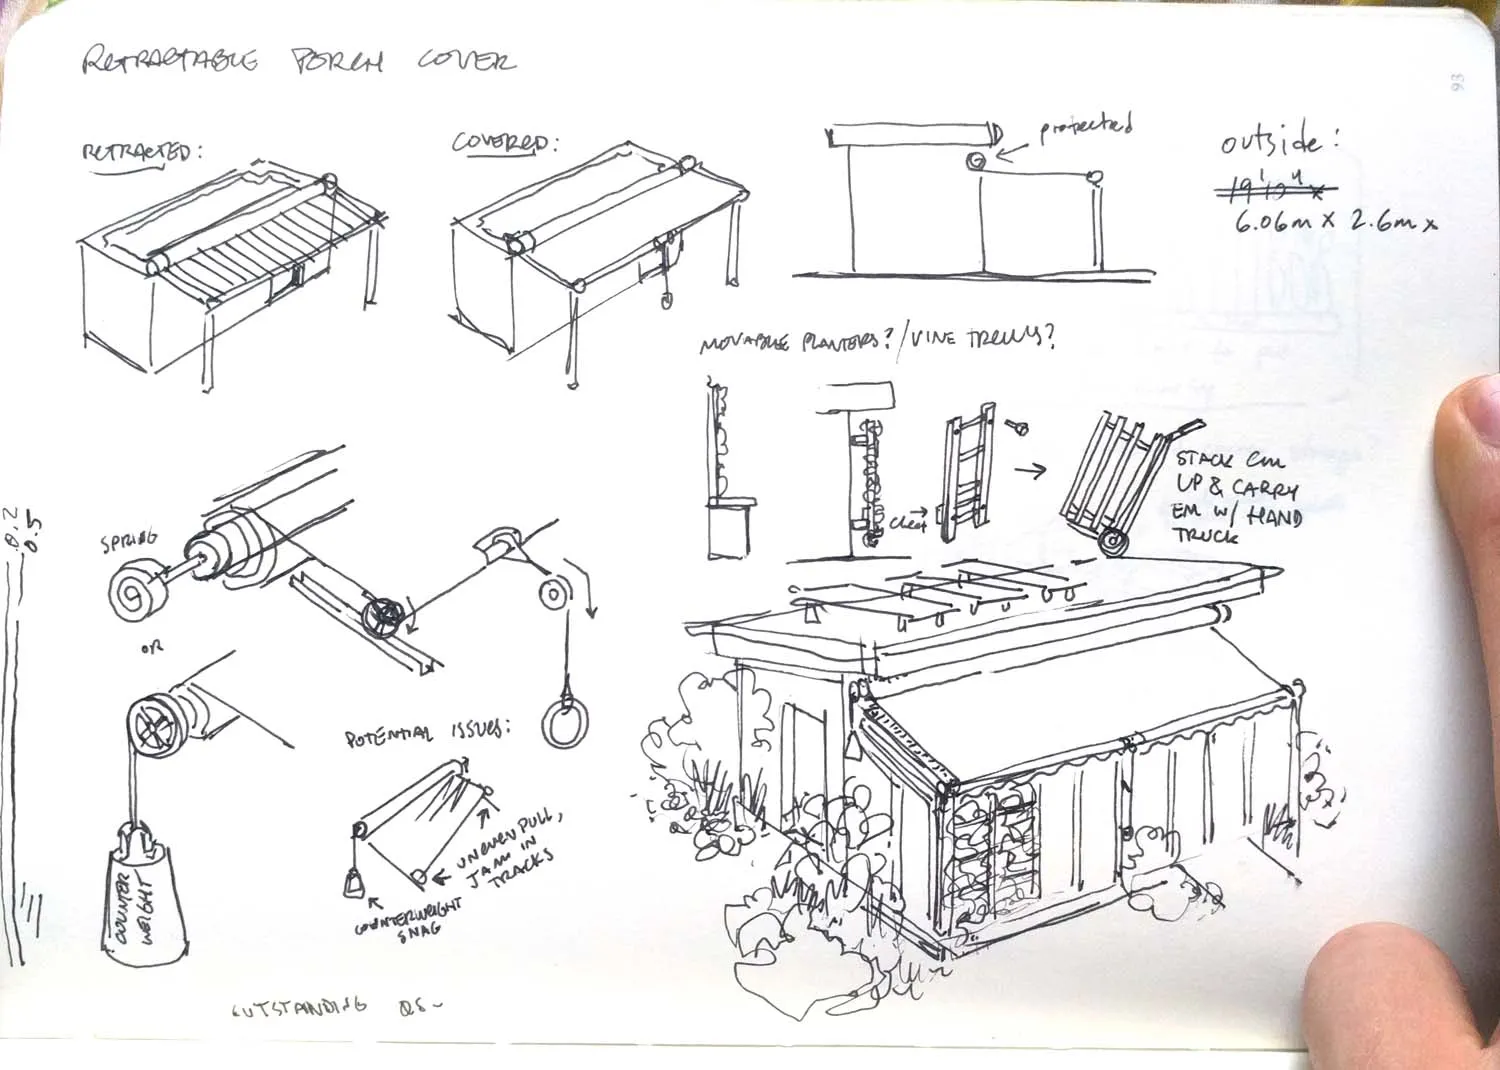 RETRACTABLE PORCH COVER
93
RETRACTED:
COVERED:
protected
outside:
19'10" x
6.06m x 2.6m x
MOVABLE PLANTERS? / VINE TRELLIS?
STACK EM
UP & CARRY
EM W/ HAND
TRUCK
cleat
0.2
0.5
SPRING
OR
POTENTIAL ISSUES:
UNEVEN PULL,
JAM IN
TRACKS
COUNTERWEIGHT
SNAG
COUNTER
WEIGHT
OUTSTANDING QS~